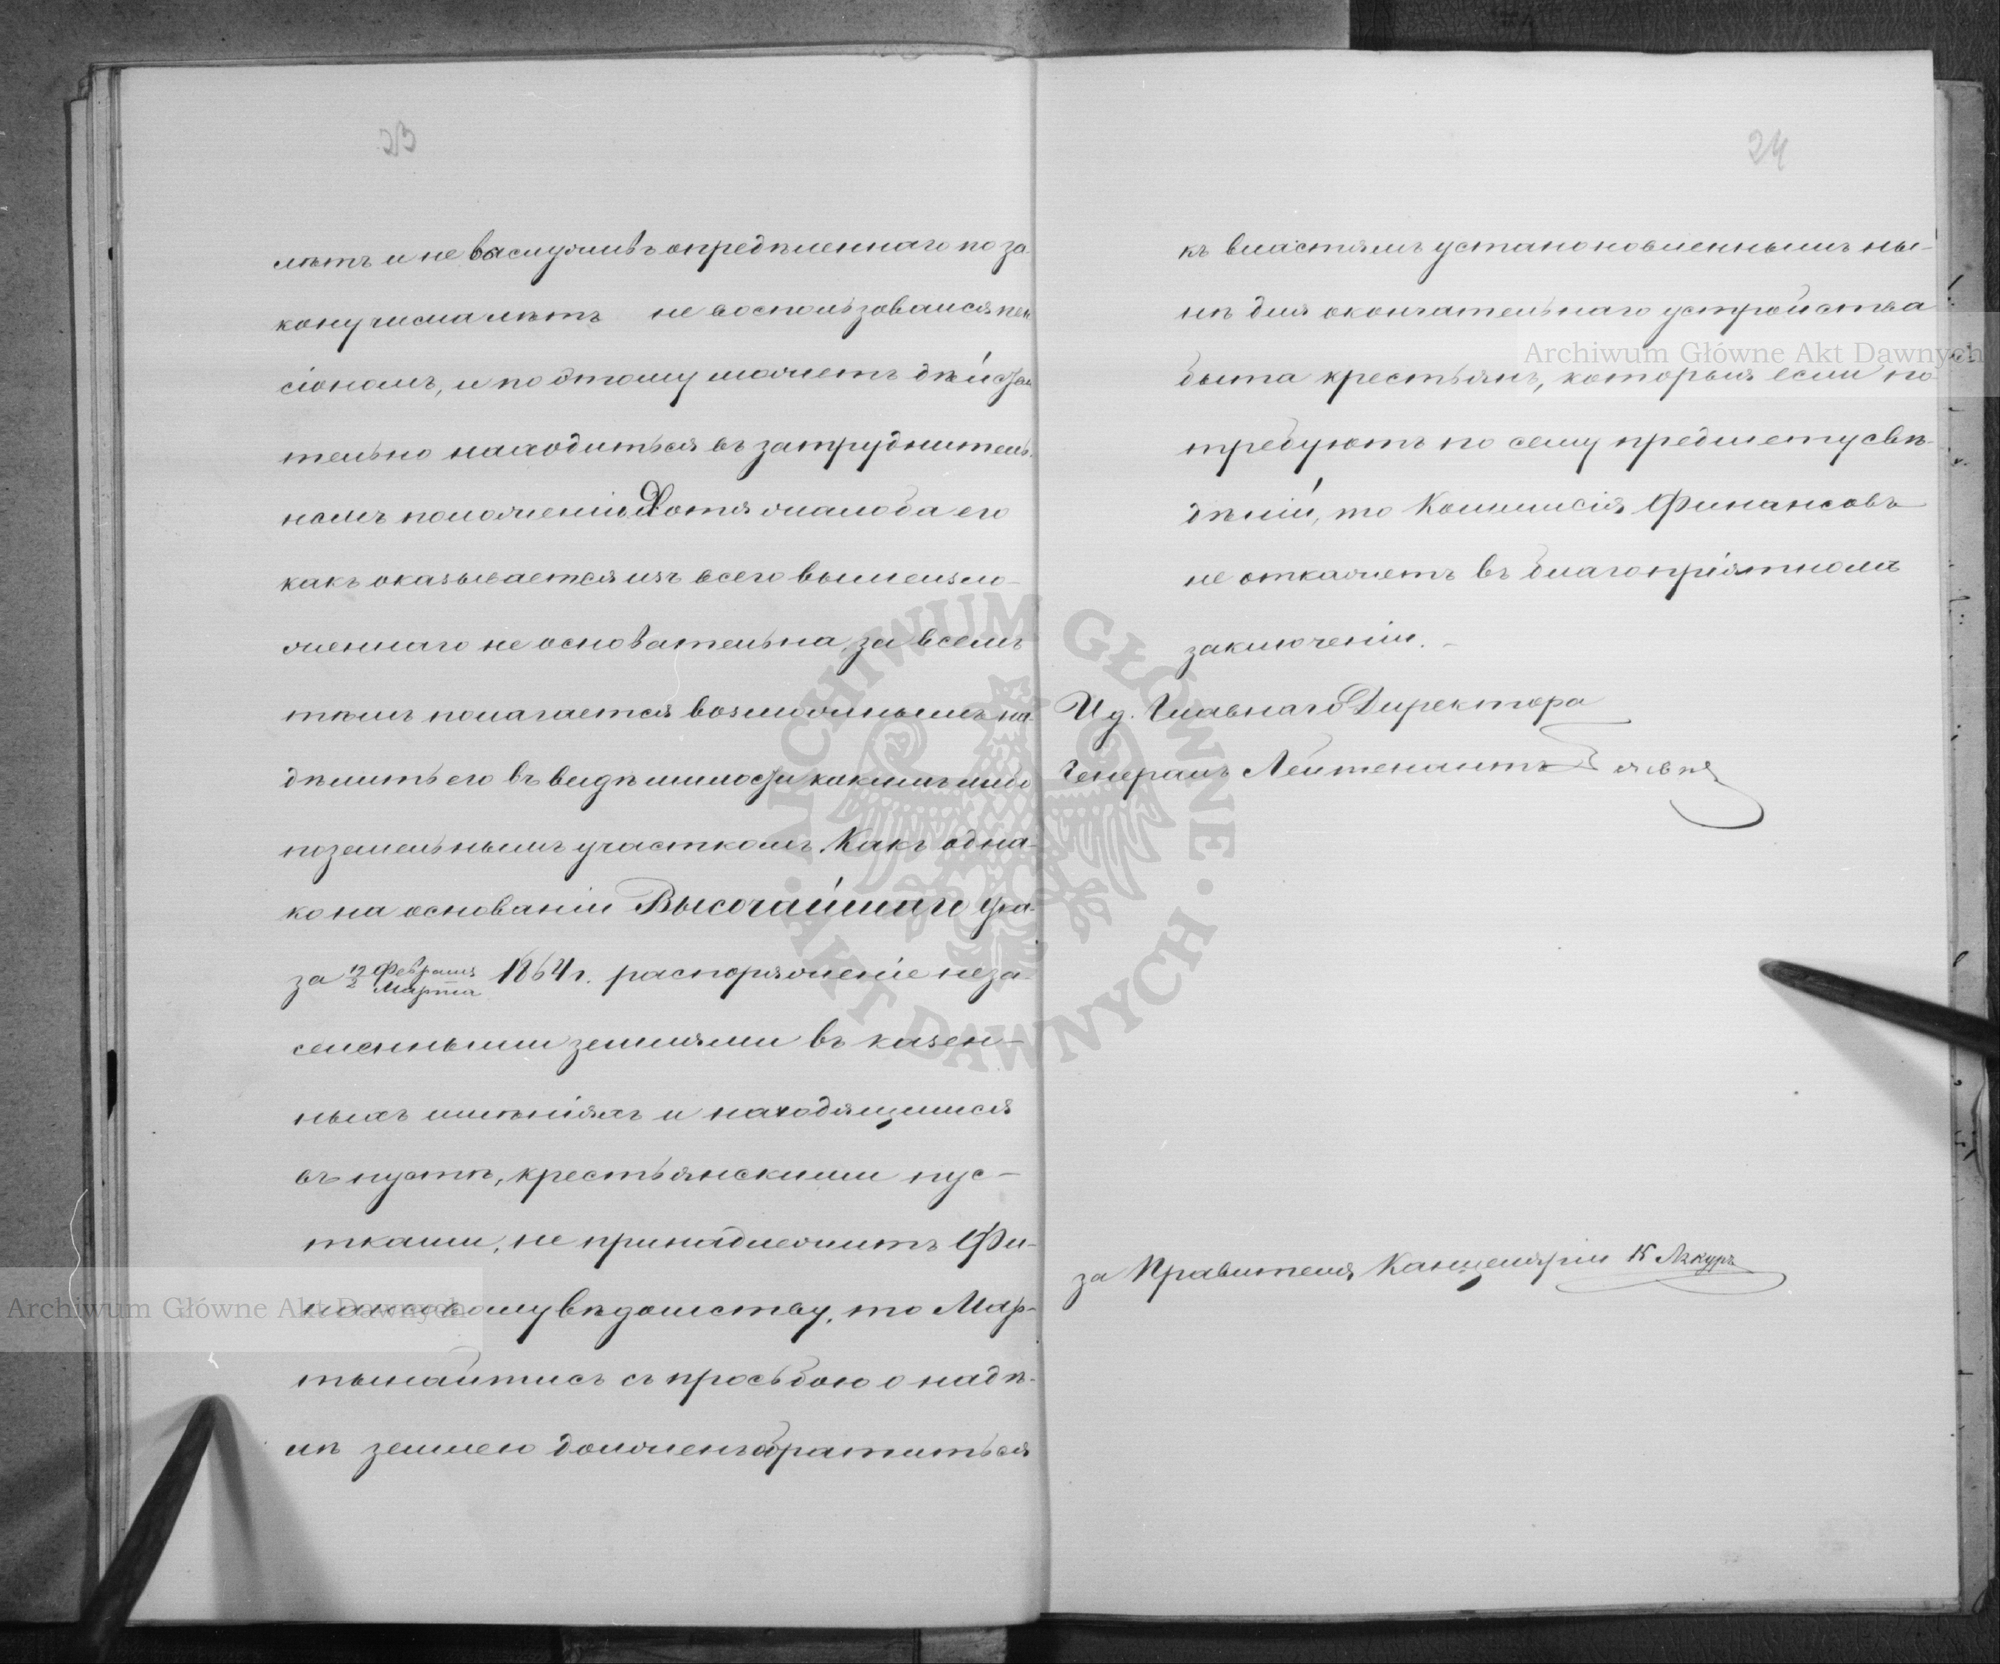 23
лѣтъ и не выслуживъ опредѣленнаго по за-
кону числа лѣтъ не воспользовался пен
сіономъ, и по этому можетъ дѣйстви
тельно находиться въ затруднитель-
номъ положеніи. Хотя жалоба его
какъ оказывается изъ всего вышеизло-
женнаго не основательна, за всемъ
тѣмъ полагается возможнымъ на
дѣлить его въ видѣ милости какимъ либо
поземельнымъ участкомъ. Какъ одна-
ко на основаніи Высочайшаго Ука-
за 19 Февраля / 2 Марта 1864 г. распоряженіе неза-
селенными землями въ казен-
ныхъ имѣніяхъ и находящимися
въ пустѣ, крестьянскими пус-
тками, не принадлежитъ Фи-
нансовому вѣдомству, то Мар-
тынайтисъ съ просьбою о надѣ-
лѣ землею долженъ обратиться
24
къ властямъ установленнымъ ны-
нѣ для окончательнаго устройства
быта крестьянъ, которыя если по
требуютъ по сему предмету свѣ-
дѣній, то Коммисія Финансовъ
не откажетъ въ благопріятномъ
заключеніи.
И д. Главнаго Директора
Генералъ Лейтенантъ
за Правителя Канцеляріи К
Archiwum Główne Akt Dawnych
Archiwum Główne Akt Dawnych
ARCHIWUM GŁÓWNE · AKT DAWNYCH ·